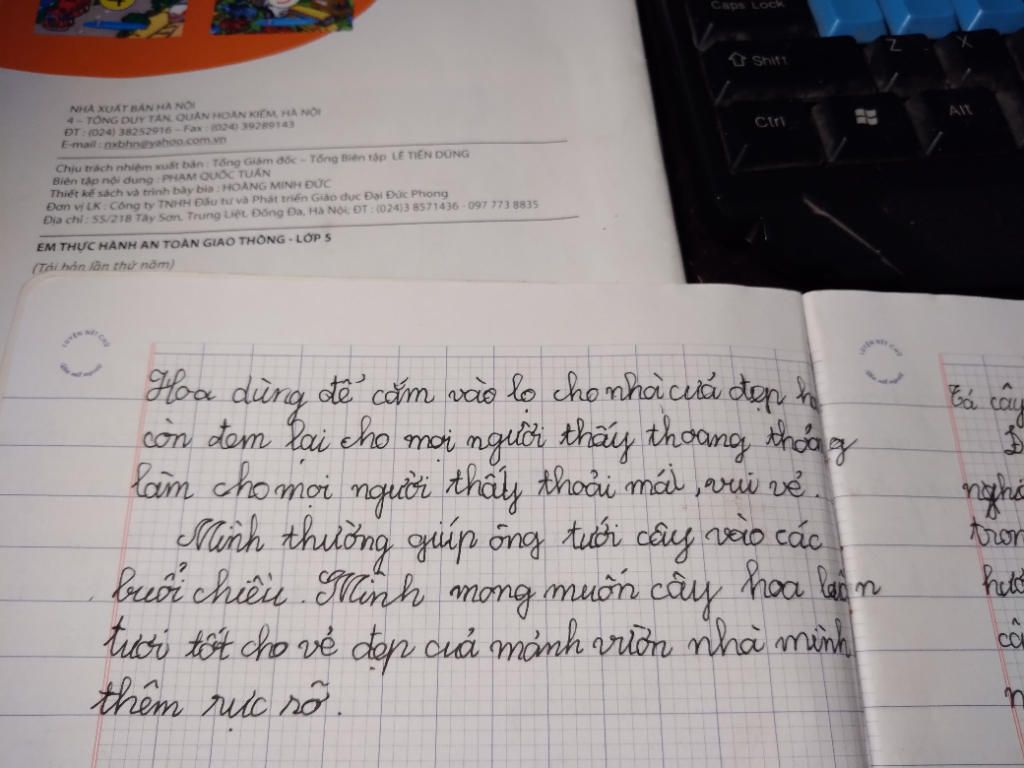 Caps Lock
Shift
Z
X
Ctrl
Alt
NHÀ XUẤT BẢN HÀ NỘI
4 – TỐNG DUY TÂN, QUẬN HOÀN KIẾM, HÀ NỘI
ĐT : (024) 38252916 – Fax : (024) 39289143
E-mail : nxbhn@yahoo.com.vn
Chịu trách nhiệm xuất bản : Tổng Giám đốc – Tổng Biên tập LÊ TIẾN DŨNG
Biên tập nội dung : PHẠM QUỐC TUẤN
Thiết kế sách và trình bày bìa : HOÀNG MINH ĐỨC
Đơn vị LK : Công ty TNHH Đầu tư và Phát triển Giáo dục Đại Đức Phong
Địa chỉ : 55/218 Tây Sơn, Trung Liệt, Đống Đa, Hà Nội, ĐT : (024)3 8571436 - 097 773 8835
EM THỰC HÀNH AN TOÀN GIAO THÔNG - LỚP 5
(Tái bản lần thứ năm)
LUYỆN NÉT CHỮ
Hoa dùng để cắm vào lọ cho nhà cuả đẹp
còn đem lại cho mọi người thấy thoang thoảng
làm cho mọi người thấy thoải mái, vui vẻ.
Mình thường giúp ông tưới cây vào các
buổi chiều. Mình mong muốn cây hoa luôn
tươi tốt cho vẻ đẹp cuả mảnh vườn nhà mình
thêm rực rỡ.
LUYỆN NÉT CHỮ
cây